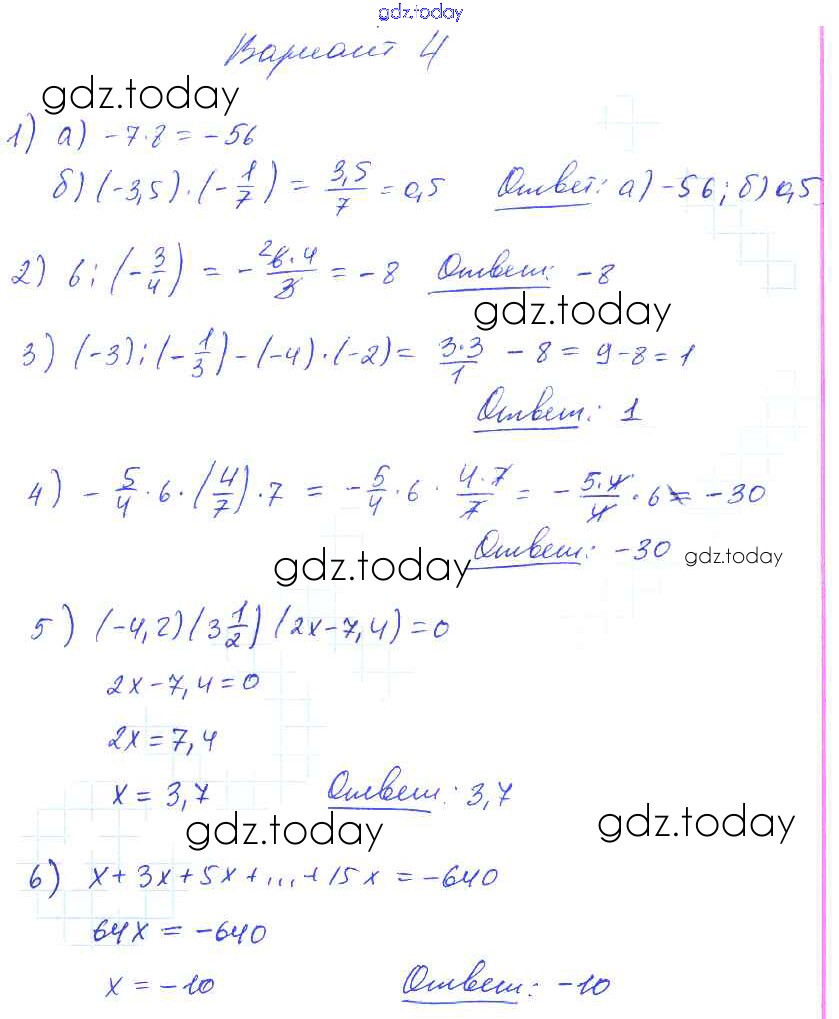 gdz.today
Вариант 4
gdz.today
1) а) -7·8 = -56
б) (-3,5)·(-1/7) = 3,5/7 = 0,5 Ответ: а) -56; б) 0,5
2) 6 : (-3/4) = - 2 6·4/3 = -8 Ответ: -8
gdz.today
3) (-3) : (-1/3) - (-4)·(-2) = 3·3/1 - 8 = 9-8 = 1
Ответ: 1
4) - 5/4 · 6 · (4/7) · 7 = - 5/4 · 6 · 4·7/7 = - 5·4/4 · 6 = -30
Ответ: -30 gdz.today
gdz.today
5) (-4,2) (3 1/2) (2x-7,4) = 0
2x-7,4=0
2x = 7,4
x = 3,7 Ответ: 3,7
gdz.today gdz.today
6) x + 3x + 5x + ... + 15x = -640
64x = -640
x = -10 Ответ: -10